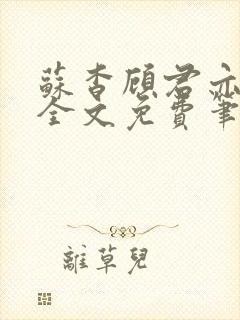 蘇杳顧君亦
全文免費筆
離草兒